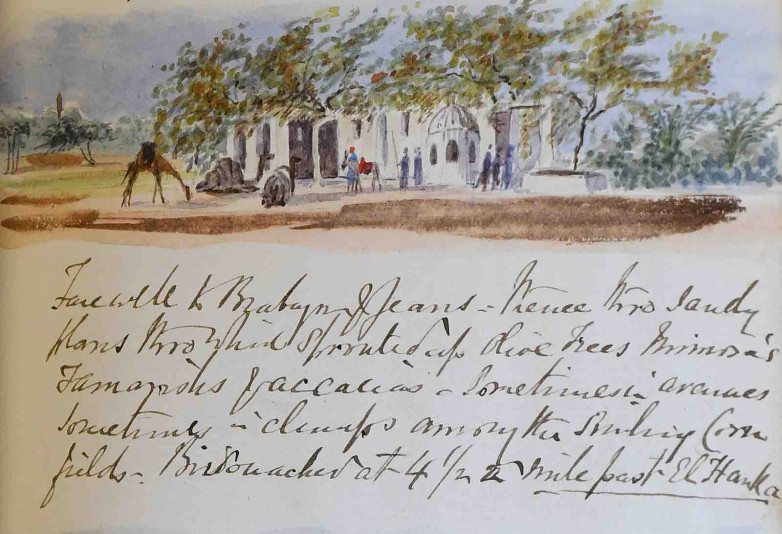 Farewell to Brabyn & Jeans – thence thro sandy
plains thro which sprouted up olive trees Mimosa's
Tamarisks & accacias – sometimes in avenues
sometimes in clumps among the smiling Corn
fields – Bivouacked at 4 1/2 a mile past El Hanka